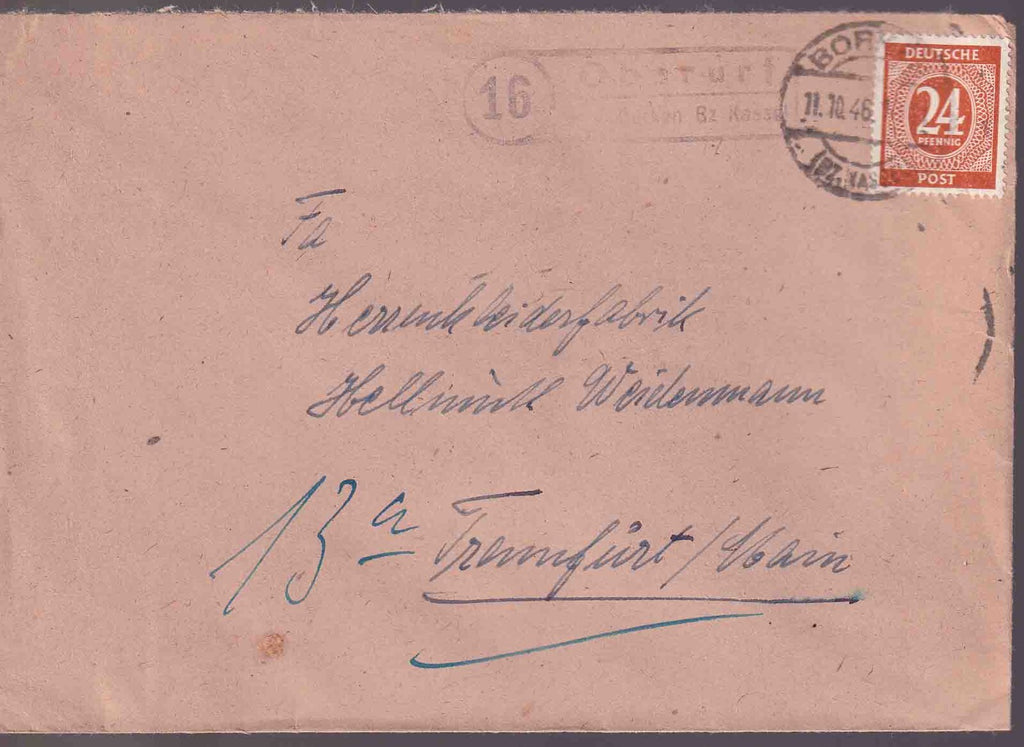 16
Oberurf
Borken Bz Kassel
BORKEN
11.10.46
(BZ. KASSEL)
DEUTSCHE
24
PFENNIG
POST
Fa
Herrenkleiderfabrik
Hellmuth Weidenmann
13a Trennfurt/Main